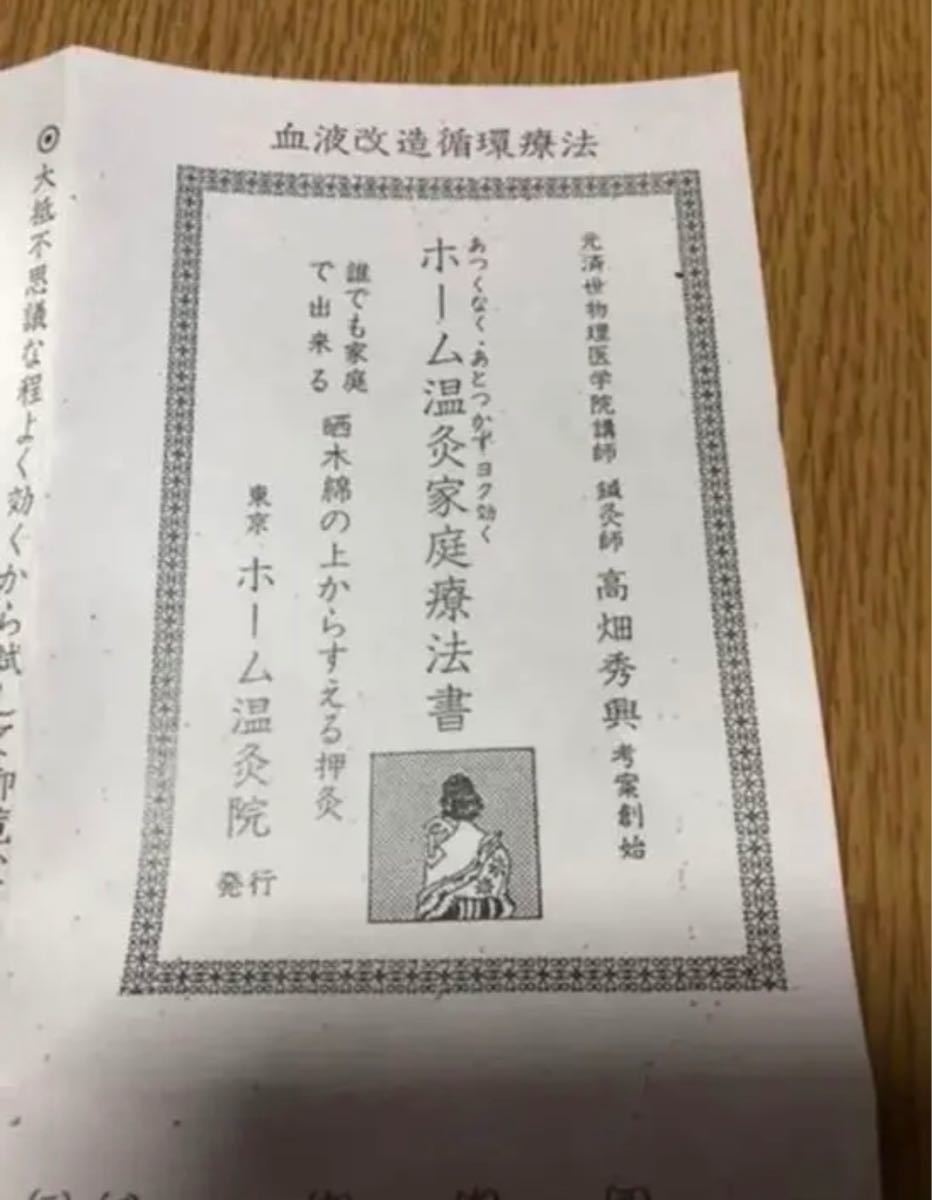 血液改造循環療法
元済世物理医学院講師 鍼灸師 高畑秀興 考案創始
あつくなく、あとつかずヨク効く
ホーム温灸家庭療法書
誰でも家庭
で出来る
晒木綿の上からすえる押灸
東京 ホーム温灸院 発行
◉大抵不思議な程よく効くから試して御覧